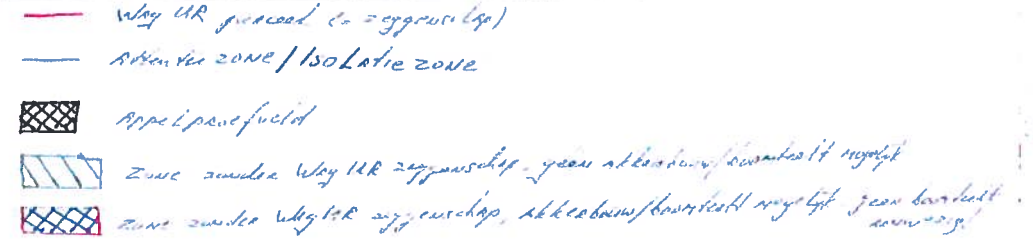 Wag UR perceel (= zeggenschap)
Attentie zone/Isolatie zone
Appelproefveld
Zone zonder Wag UR zeggenschap, geen akkerbouw/boomteelt mogelijk
Zone zonder Wag UR zeggenschap, akkerbouw/boomteelt mogelijk geen boomteelt
aanwezig!